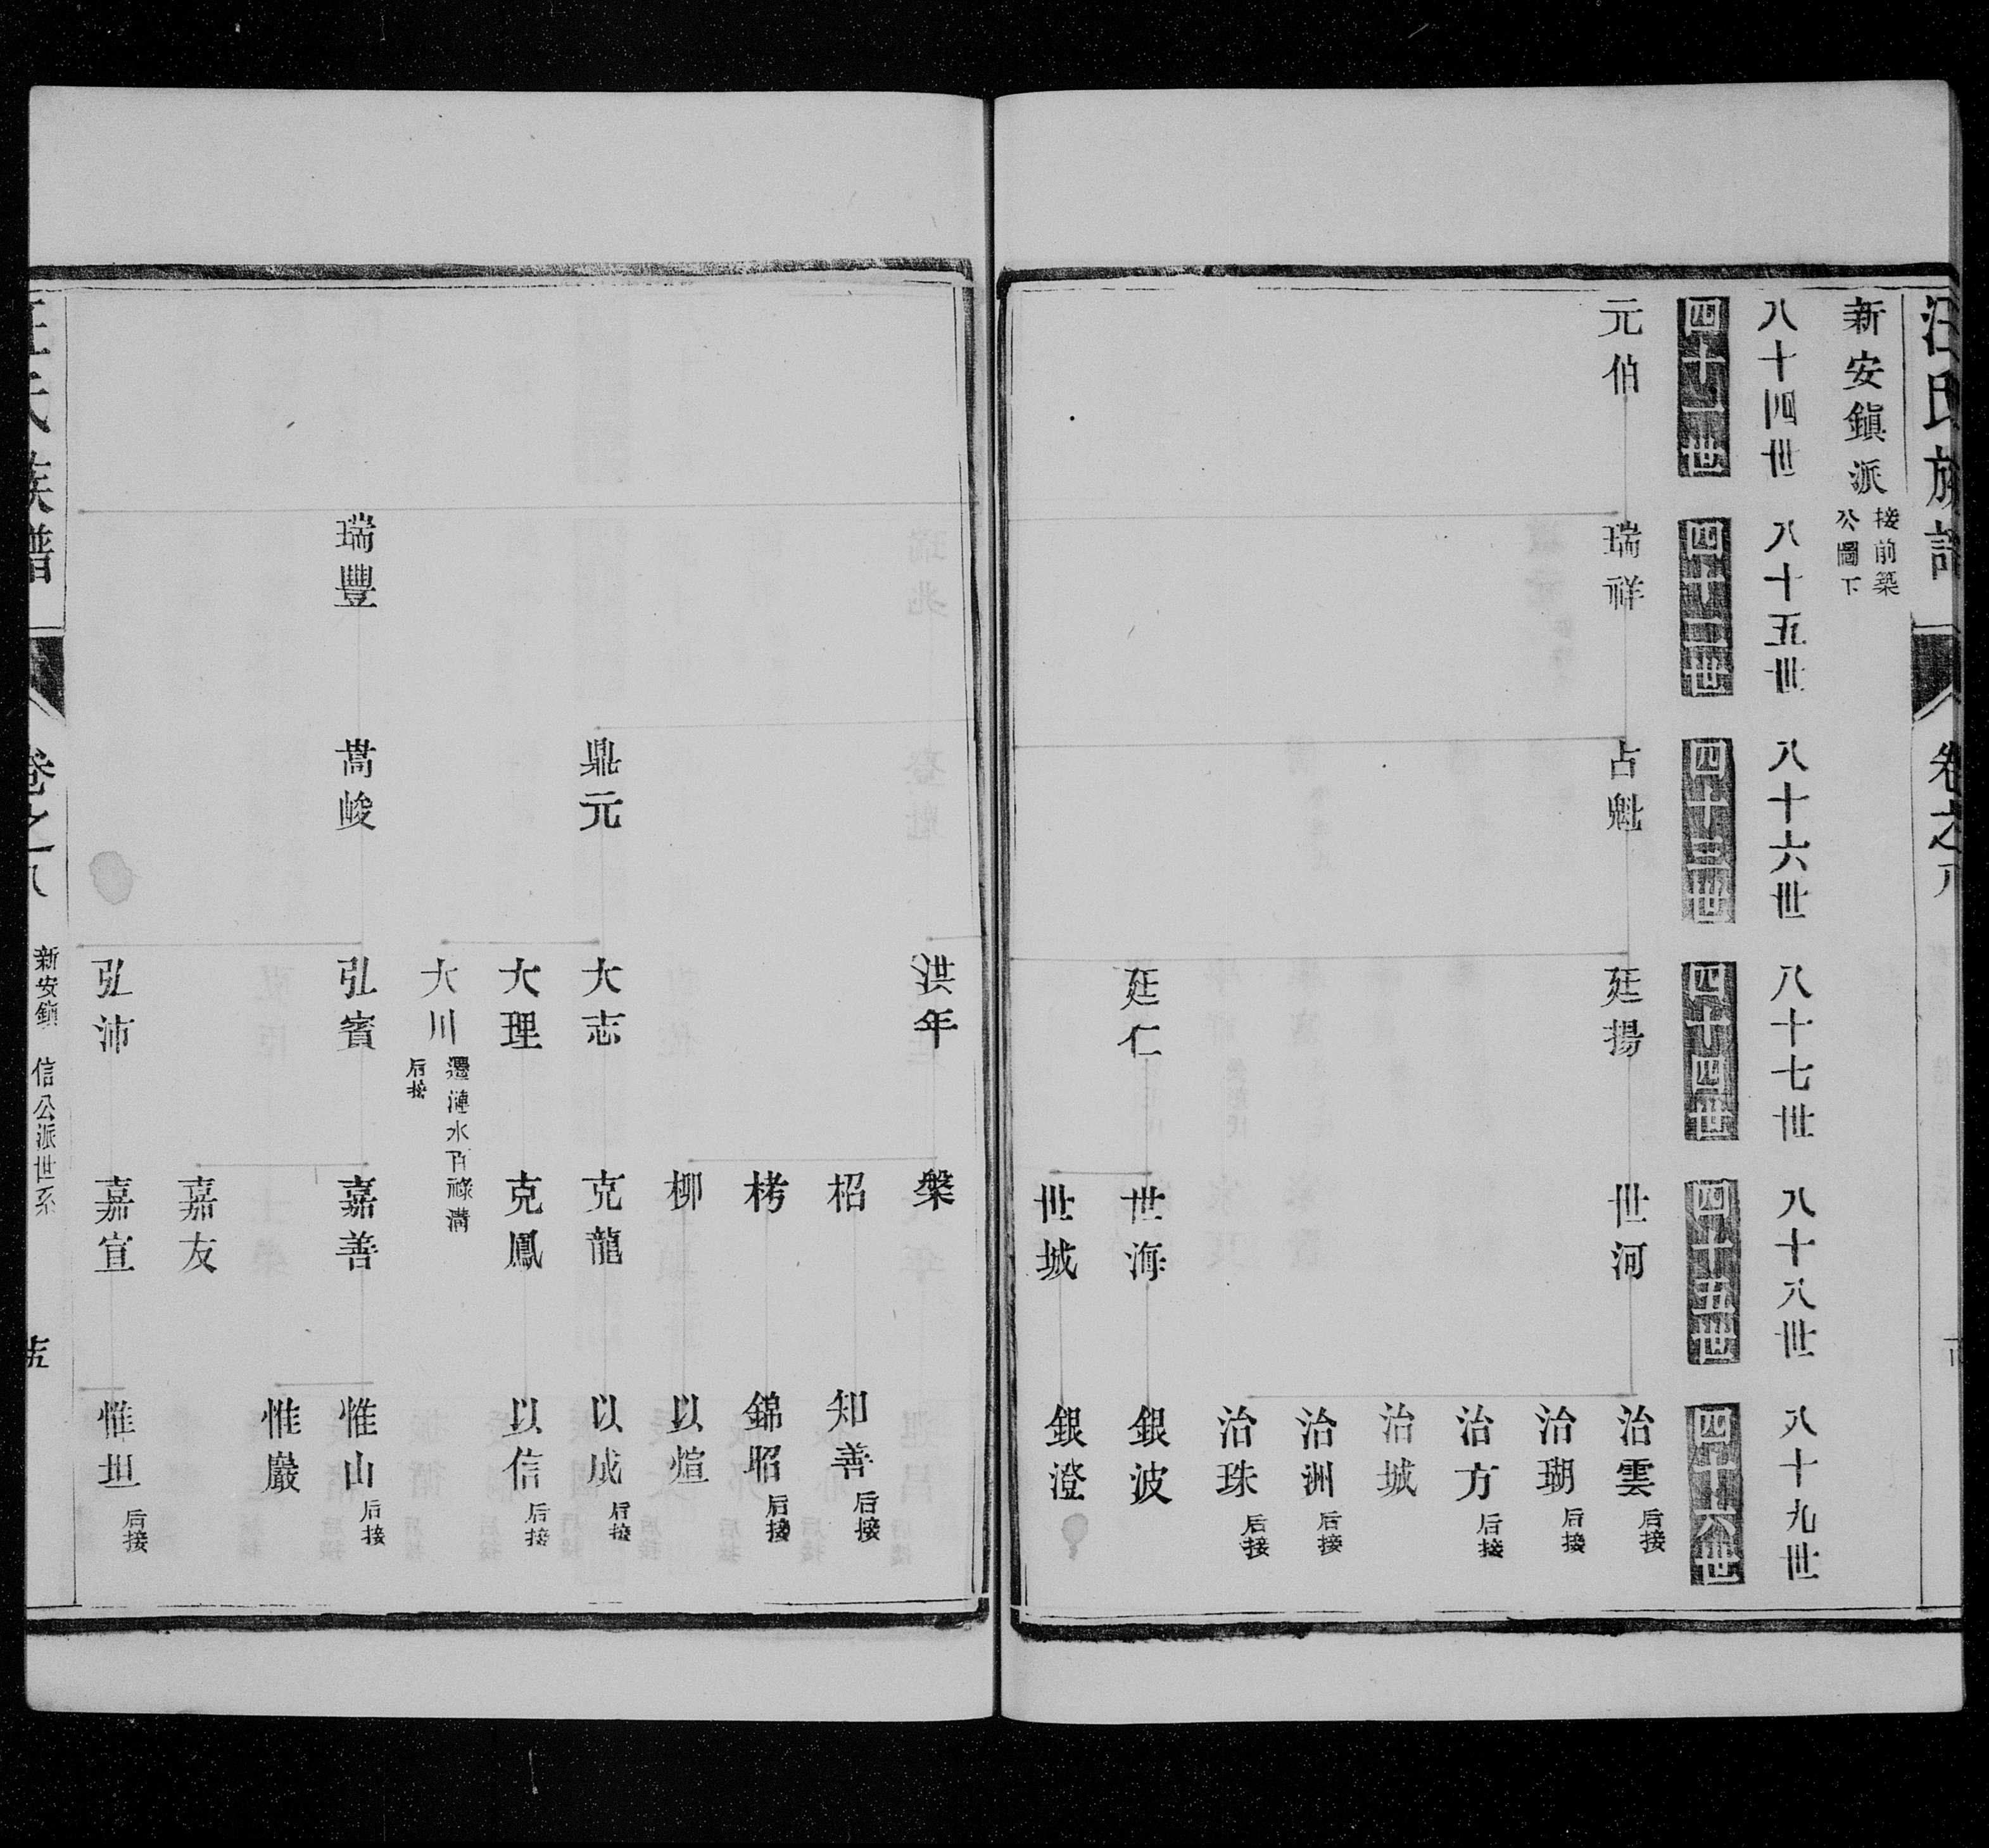 汪氏族譜
卷之八
新安鎮派 接前築公圖下
八十四世 八十五世 八十六世 八十七世 八十八世 八十九世
四十一世 四十二世 四十三世 四十四世 四十五世 四十六世
元伯 瑞祥 占魁 廷揚 世河 治雲 后接
治瑚 后接
治方 后接
治城
治洲 后接
治珠 后接
廷仁 世海 銀波
世城 銀澄
洪年 槃
柖 知善 后接
栲 錦昭 后接
柳 以煊
鼎元 大志 克龍 以成 后接
大理 克鳳 以信 后接
大川 遷漣水百祿溝 后接
瑞豐 嵩峻 弘賓 嘉善 惟山 后接
惟巖
嘉友
弘沛 嘉宣 惟坦 后接
汪氏族譜
卷之八
新安鎮 信公派世系